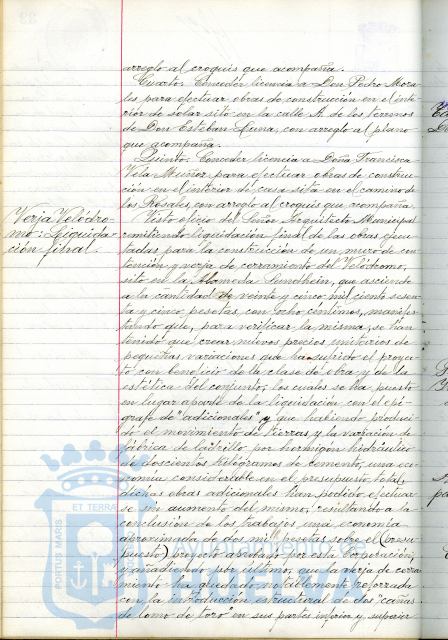 arreglo al croquis que acompaña.
Cuarto. Conceder licencia a Don Pedro Mora-
les para efectuar obras de construcción en el inte-
rior de solar sito en la calle A. de los terrenos
de Don Esteban Luna, con arreglo al plano
que acompaña.
Quinto. Conceder licencia a Doña Francisca
Vela Muñoz para efectuar obras de construc-
ción en el interior de casa sita en el camino de
los Rosales, con arreglo al croquis que acompaña.
Verja Velódro-
mo: Liquida-
ción final.
Visto oficio del Señor Arquitecto Municipal
remitiendo liquidación final de las obras ejecu-
tadas para la construcción de un muro de con-
tención y verja de cerramiento del Velódromo,
sito en la Alameda Sundheim, que asciende
a la cantidad de veinte y cinco mil ciento sesen-
ta y cinco pesetas, con ocho céntimos, manifes-
tando que, para verificar la misma, se han
tenido que crear nuevos precios unitarios de
pequeñas variaciones que ha sufrido el proyec-
to con beneficio de la clase de obra y de la
estética del conjunto, los cuales se ha puesto
en lugar aparte de la liquidación con el epí-
grafe de "adicionales" y que habiendo produci-
do el movimiento de tierras y la variación de
fábrica de ladrillo por hormigón hidráulico
de doscientos kilogramos de cemento, una eco-
nomía considerable en el presupuesto total,
dichas obras adicionales han podido efectuar-
se sin aumento del mismo, resultando a la
conclusión de los trabajos una economía
aproximada de dos mil pesetas sobre el (presu-
puesto) proyecto aprobado por esta Corporación,
y añadiendo por último, que la verja de cerra-
miento ha quedado notablemente reforzada
con la introducción estructural de dos "cañas
de lomo de toro" en sus partes inferior y superior
PORTUS MARIS
ET TERRAE